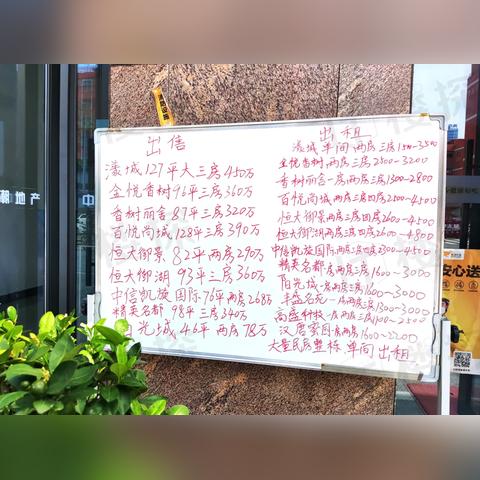 出售
濠城127平大三房450万
金悦香树96平三房360万
香树丽舍87平三房320万
百悦尚城128平三房390万
恒大御景82平两房290万
恒大御湖93平三房360万
中信凯旋国际76平两房268万
精英名都98平三房340万
阳光城46平两房78万
出租
濠城单间两房三房1500-3500
金悦香树两房三房2500-3200
香树丽舍一房两房三房1300-2800
百悦尚城两房三房四房2500-4500
恒大御景两房三房四房2600-4500
恒大御湖两房三房四房2600-4800
中信凯旋国际两房三房四房2300-4500
精英名都一房两房三房1600-3000
阳光城一房两房三房1600-3000
丰盛名苑一房两房三房1300-3000
高盛科技一房两房三房1100-2500
汉唐家园一房两房1600-2200
大量民房整栋单间出租
地产
中
安心送